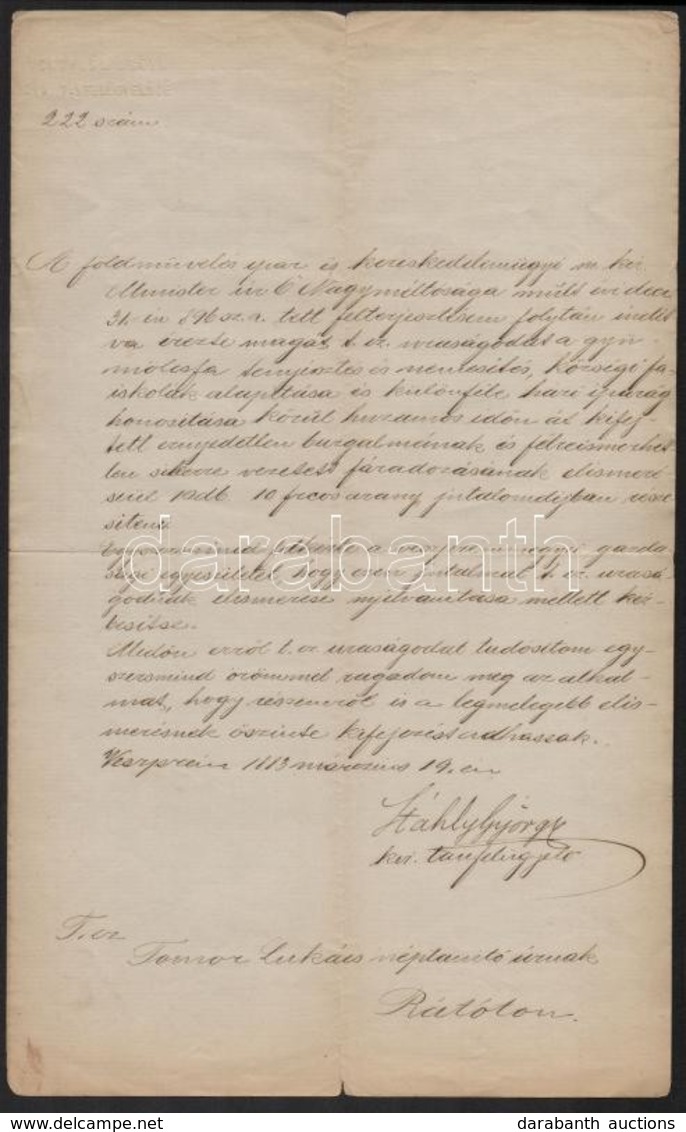 222 szám
A földmüvelés ipar és kereskedelemügyi m. kir.
Minister úr Ő Nagyméltósága múlt évi decz.
31.-én 896 sz. a. tett felterjesztésem folytán indít-
va érezte magát t. cz. uraságodat a gyü-
mölcsfa tenyésztés és nemesítés, községi fa-
iskolák alapítása és különféle házi iparág
honosítása körül huzamos időn át kifej-
tett ernyedetlen buzgalmának és félreismerhet-
len sikerre vezetett fáradozásának elismeré-
séül 10 frcos arany jutalomdíjban része-
síteni
Egyszersmind felkérte a veszprémmegyei gazda-
sági egyesületet, hogy ezen jutalmat t. cz. urasá-
godnak elismerése nyilvánítása mellett kéz-
besítse.
Midőn erről t. cz. uraságodat tudósítom egy-
szersmind örömmel ragadom meg az alkal-
mat, hogy részemről is a legmelegebb elis-
merésnek őszinte kifejezést adhassak.
Veszprém 1883 március 19.-én
Stáhly György
kir. tanfelügyelő
T. cz
Tomor Lukács néptanító úrnak
Rátóton.
darabanth
darabanth auctions